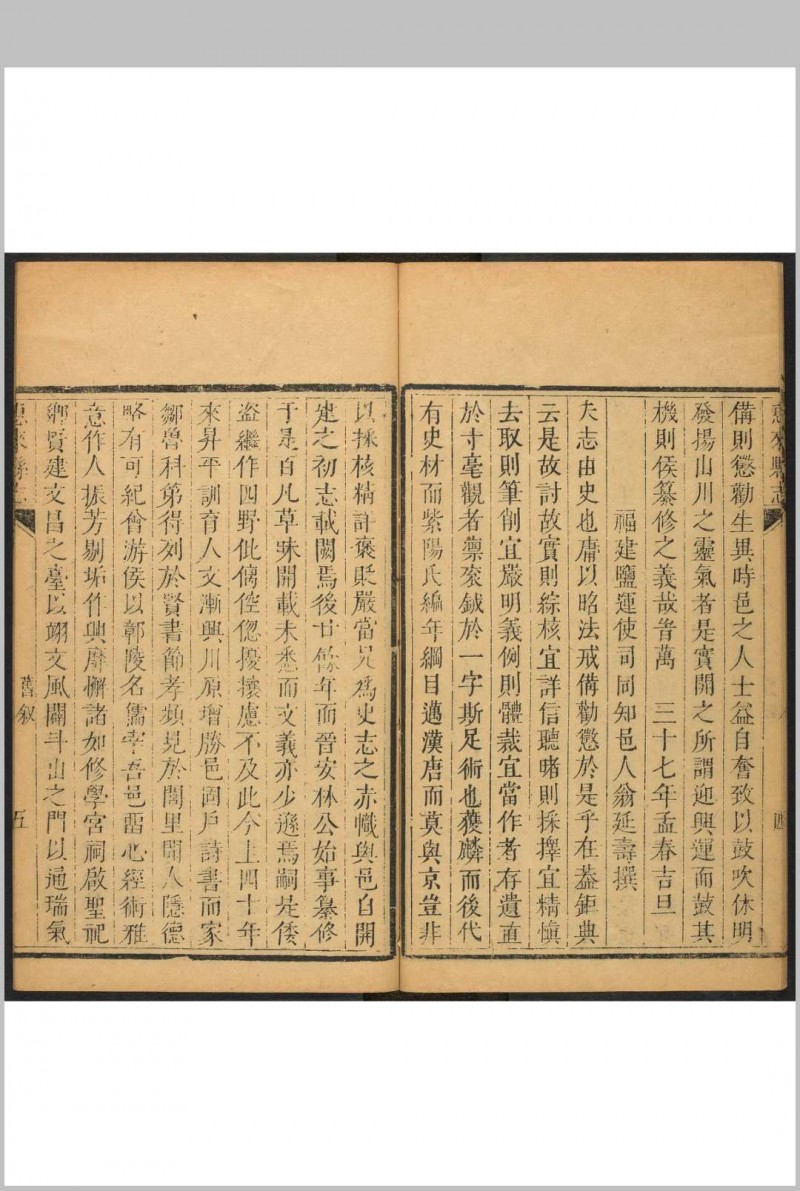 惠來縣志
四
備則懲勸生異時邑之人士益自奮致以鼓吹休明
發揚山川之靈氣者是實開之所謂迎興運而鼓其
機則侯纂修之義哉旹萬 三十七年孟春吉旦
福建鹽運使司同知邑人翁延壽撰
夫志由史也庸以昭法戒備勸懲於是乎在葢鉅典
云是故討故實則綜核宜詳信聽睹則採擇宜精慎
去取則筆削宜嚴明義例則體裁宜當作者存遺直
於寸毫觀者稟袞鉞於一字斯足術也獲麟而後代
有史材而紫陽氏編年綱目邁漢唐而莫與京豈非
以採核精詳褒貶嚴當見爲史志之赤幟與邑自開
建之初志載闕焉後廿餘年而晉安林公始事纂修
于是百凡草昧開載未悉而文義亦少遜焉嗣是倭
盗繼作四野仳𠌯倥偬擾攘慮不及此今上四十年
來昇平訓育人文漸興川原增勝邑闾戶詩書而家
鄒魯科第得列於賢書節孝頻見於閭里聞人隱德
略有可紀會游侯以鄣陵名儒宰吾邑留心經術雅
意作人振芳剔垢作興靡懈諸如修學宫祠啟聖祀
鄉賢建文昌之臺以翊文風闢斗山之門以通瑞氣
惠來縣志
舊叙
五